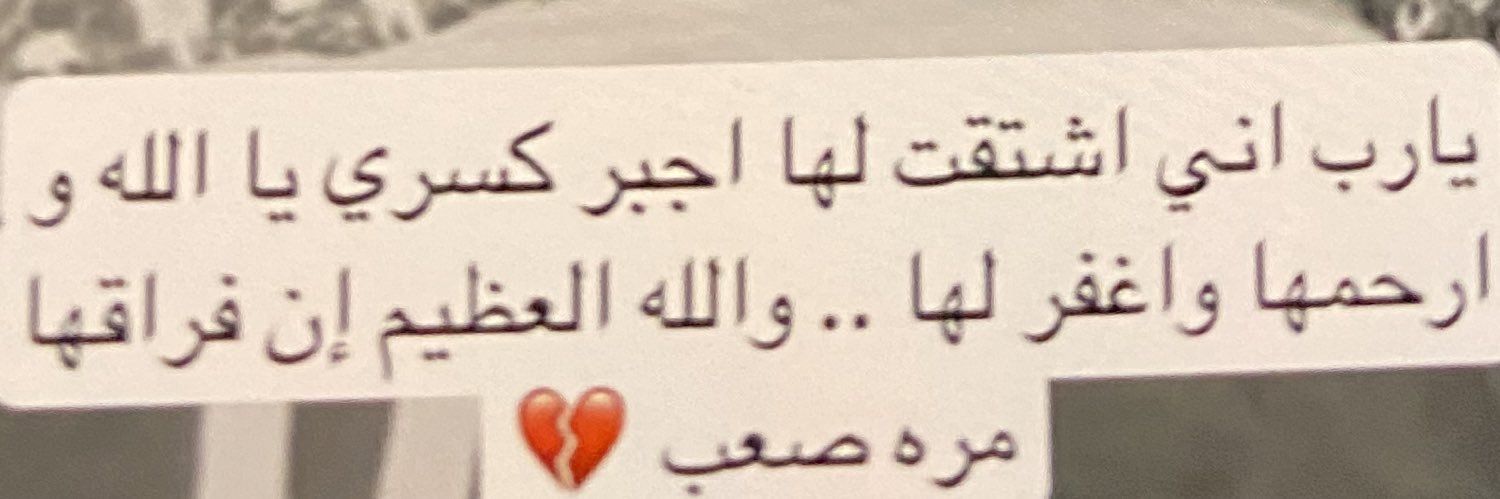 يارب اني اشتقت لها اجبر كسري يا الله و
ارحمها واغفر لها .. والله العظيم إن فراقها
مره صعب 💔